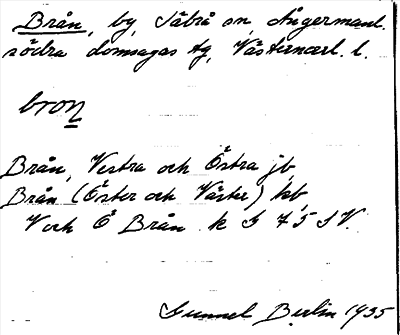 Brån, by, Säbrå sn, Ångermanl.
södra domsagas tg, Västernorrl. l.
bron
Brån, Vestra och Östra jb,
Brån (Öster och Väster) hb,
V och Ö Brån k G 75 SV.
Gunnel Berlin 1935